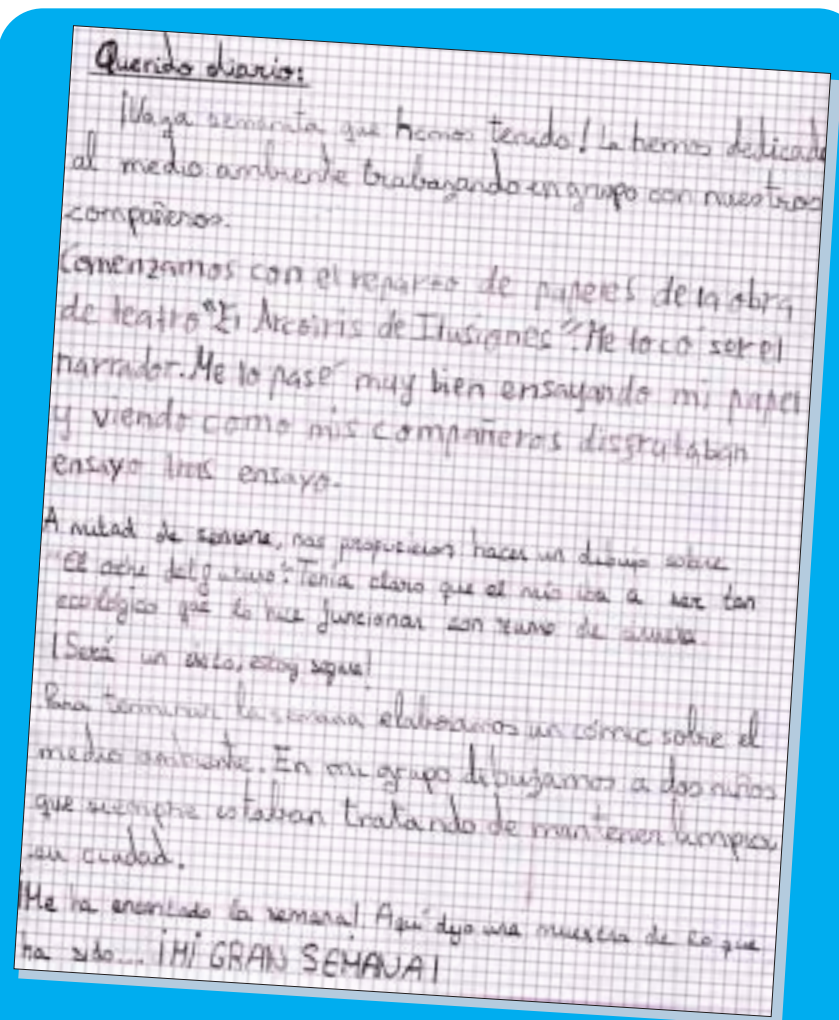 Querido diario:
¡Vaya semanita que hemos tenido! La hemos dedicado
al medio ambiente trabajando en grupo con nuestros
compañeros.
Comenzamos con el reparto de papeles de la obra
de teatro "El Arcoiris de Ilusiones". Me tocó ser el
narrador. Me lo pasé muy bien ensayando mi papel
y viendo como mis compañeros disfrutaban
ensayo tras ensayo.
A mitad de semana, nos propusieron hacer un dibujo sobre
"El coche del futuro". Tenía claro que el mío iba a ser tan
ecológico que lo hice funcionar con zumo de
¡Será un éxito, estoy seguro!
Para terminar la semana elaboramos un cómic sobre el
medio ambiente. En mi grupo dibujamos a dos niños
que siempre estaban tratando de mantener limpia
su ciudad.
¡Me ha encantado la semana! Aquí dejo una muestra de lo que
ha sido... ¡MI GRAN SEMANA!